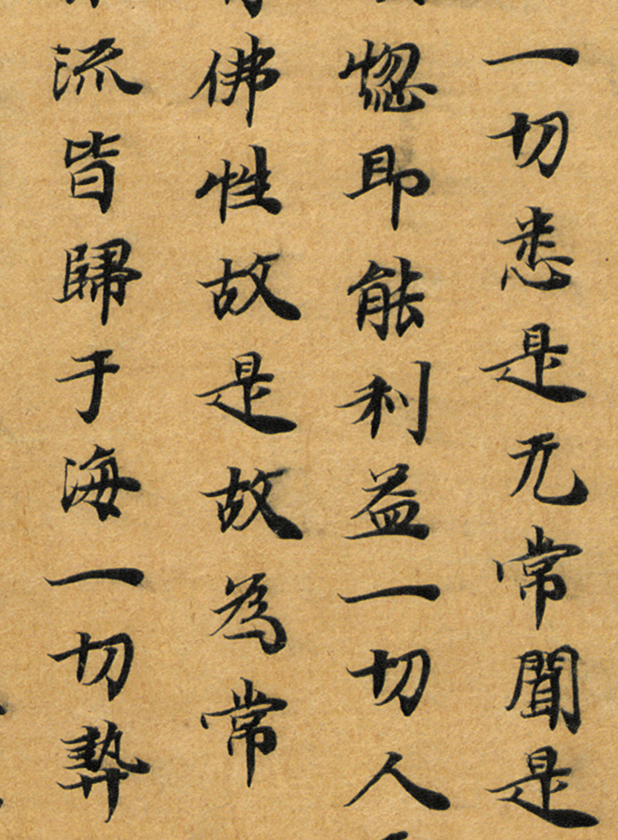 一切悉是无常聞是
即能利益一切人
佛性故是故為常
流皆歸于海一切契